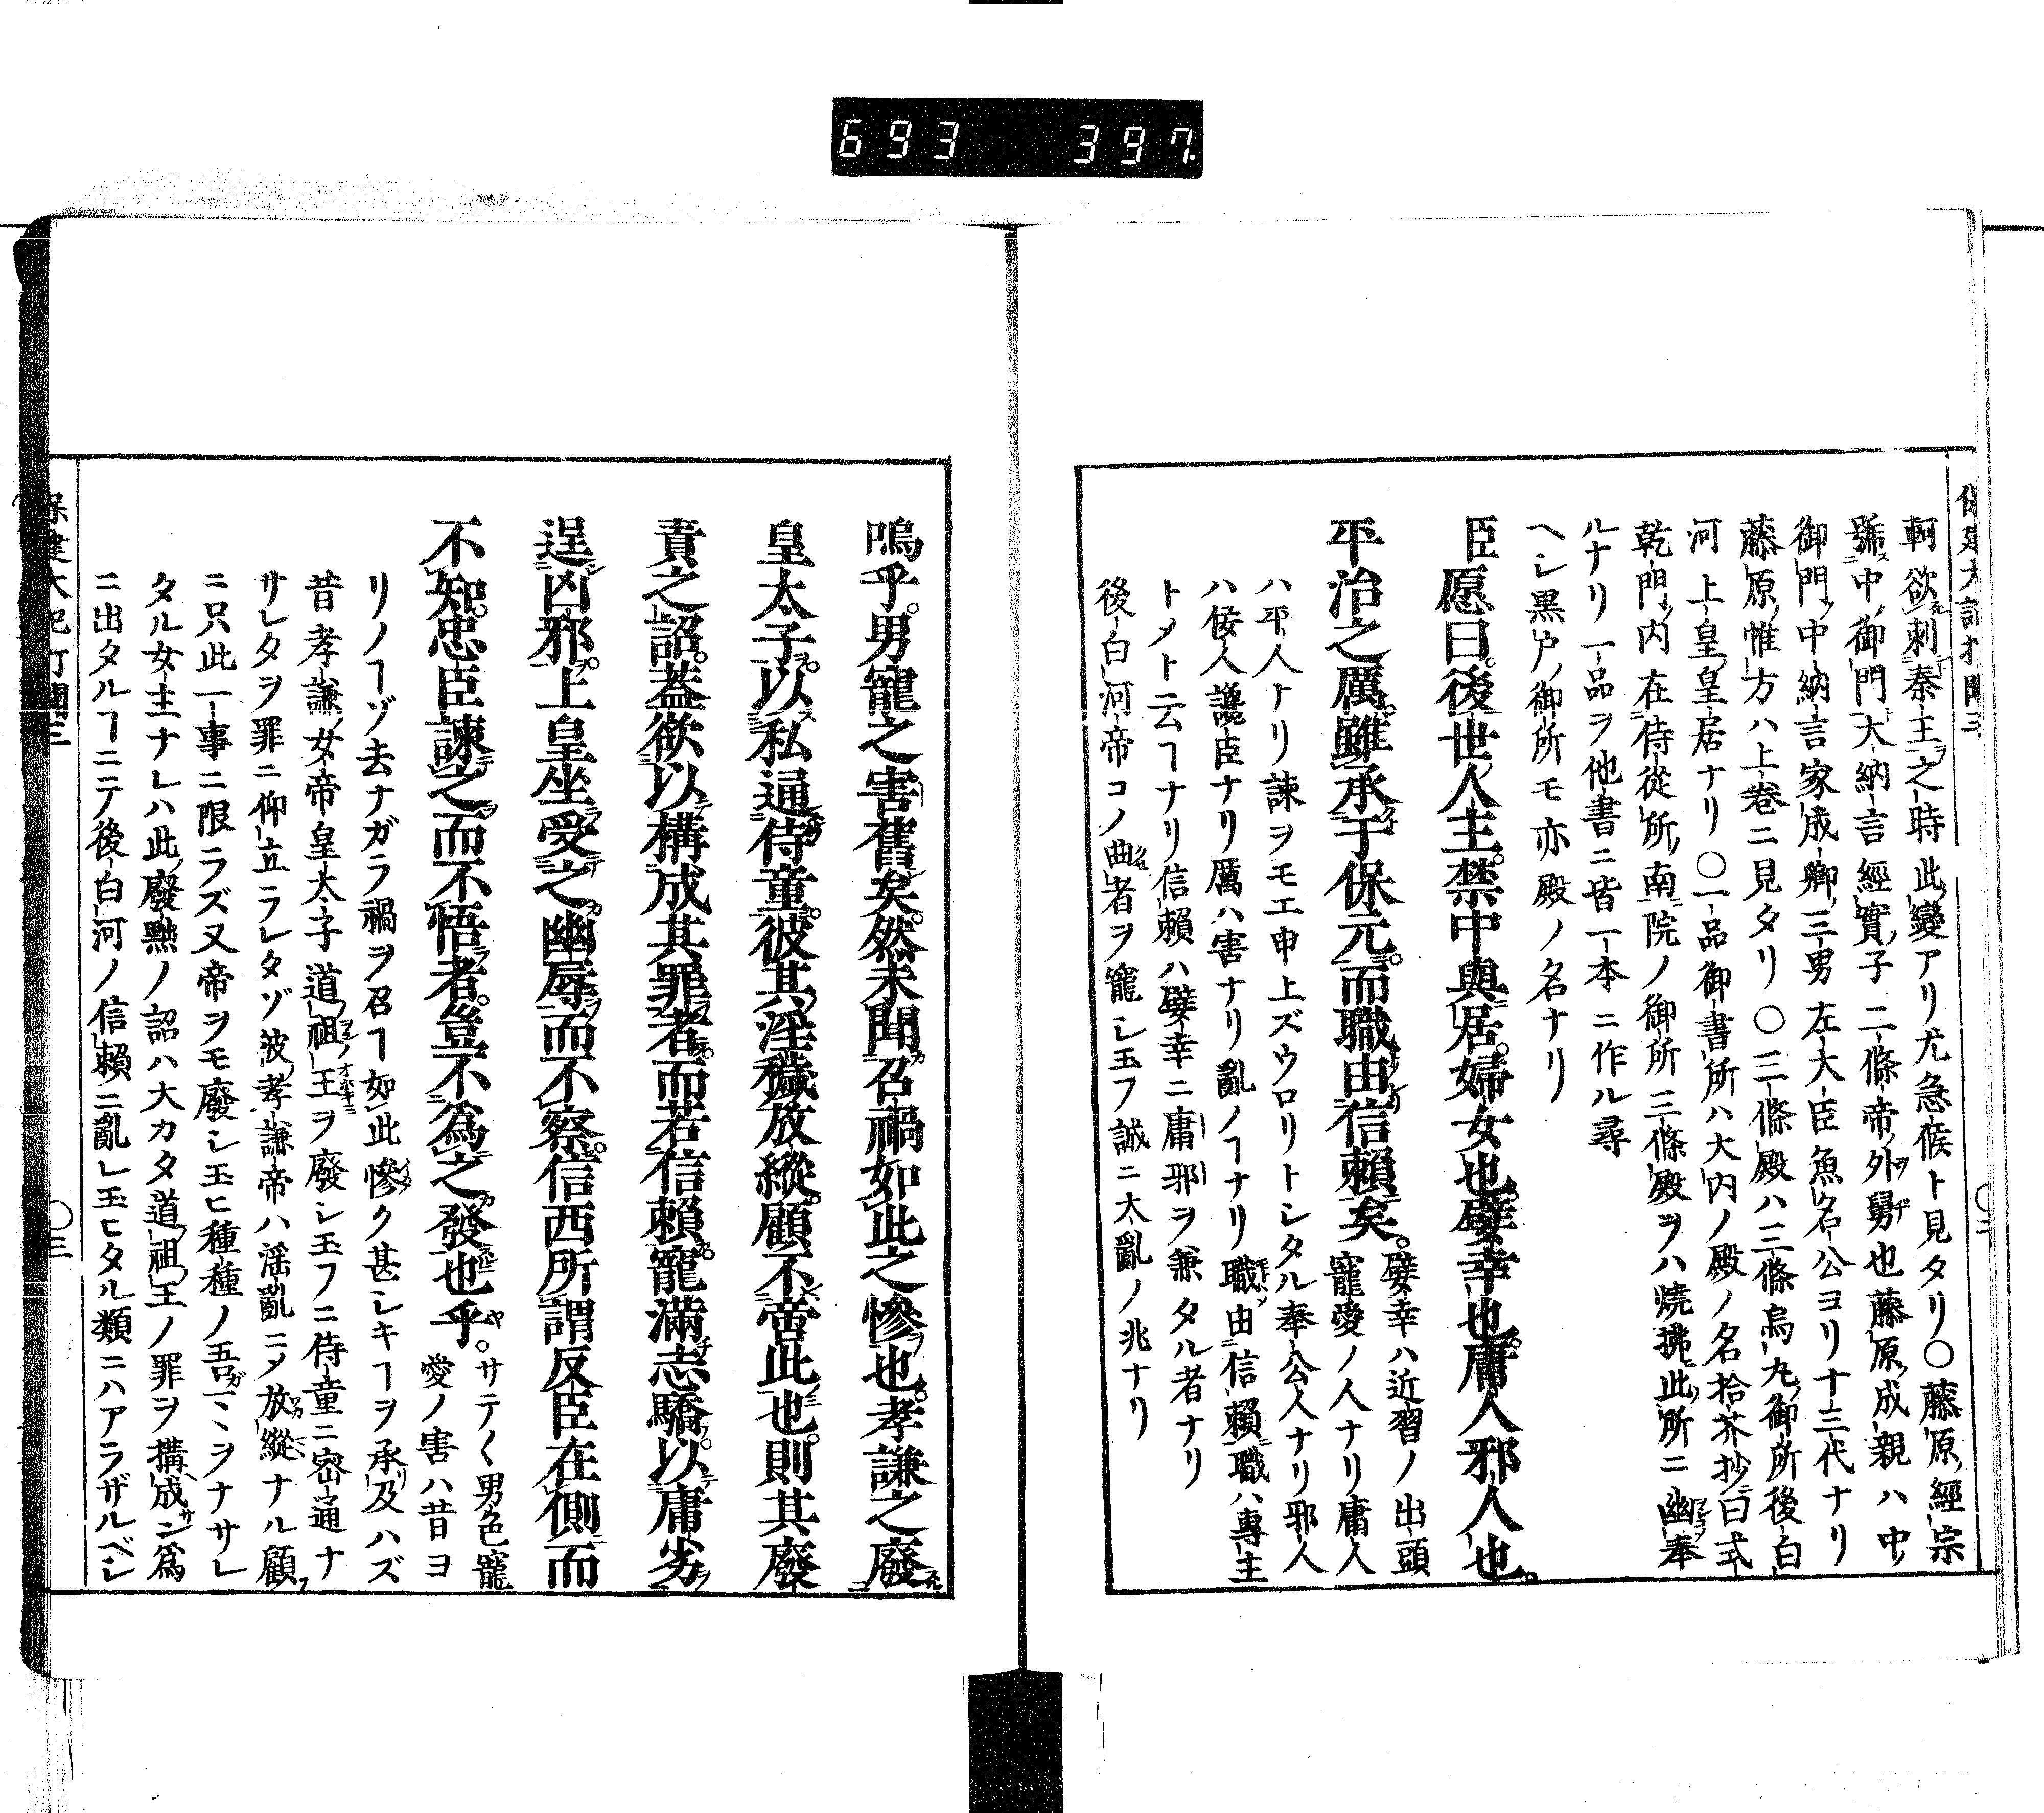 693 397
保建大記打聞三
軻欲刺秦王之時此變アリ尤急候ト見タリ〇藤原經宗
號中御門大納言經實子二條帝ノ外舅也藤原成親ハ中
御門中納言家成卿三男左大臣魚名公ヨリ十三代ナリ
藤原惟方ハ上卷ニ見タリ〇三條殿ハ三條烏丸御所後白
河上皇皇居ナリ〇一品御書所ハ大内ノ殿ノ名拾芥抄曰式
乾門内在侍從所南院ノ御所三條殿ヲハ燒拂此所ニ幽奉
ルナリ一品ヲ他書ニ皆一本ニ作ル尋
ヘシ黒戸ノ御所モ亦殿ノ名ナリ
臣愿曰後世人主禁中與居婦女也嬖幸也庸人邪人也。
平治之厲雖承于保元而職由信賴矣。
嬖幸ハ近習ノ出頭
寵愛ノ人ナリ庸人
ハ平人ナリ諫ヲモエ申上ズウロリトシタル奉公人ナリ邪人
ハ侫人讒臣ナリ厲ハ害ナリ亂ノヿナリ職由信賴職ハ專主
トメト云ヿナリ信賴ハ嬖幸ニ庸邪ヲ兼タル者ナリ
後白河帝コノ曲者ヲ寵シ玉フ誠ニ大亂ノ兆ナリ
〇二
嗚乎男寵之害舊矣然未聞召禍如此之慘也孝謙之廢
皇太子以私通侍童彼其淫穢放縱顧不啻此也則其廢
責之詔蓋欲以構成其罪者而若信賴寵滿志驕以庸劣
逞凶邪上皇坐受之幽辱而不察信西所謂反臣在側而
不知忠臣諫之而不悟者豈不爲之發也乎。
サテ〱男色寵
愛ノ害ハ昔ヨ
リノヿゾ去ナガラ禍ヲ召ヿ如此慘ク甚シキヿヲ承及ハズ
昔孝謙女帝皇太子道祖王ヲ廢シ玉フニ侍童ニ密通ナ
サレタヲ罪ニ仰立ラレタゾ波孝謙帝ハ淫亂ニメ放縱ナル顧
ニ只此一事ニ限ラズ又帝ヲモ廢シ玉ヒ種種ノ吾マヽヲナサレ
タル女主ナレハ此廢黜ノ詔ハ大カタ道祖王ノ罪ヲ構成ン爲
ニ出タルヿニテ後白河ノ信賴ニ亂レ玉ヒタル類ニハアラザルベシ
保建大記打聞三
〇三